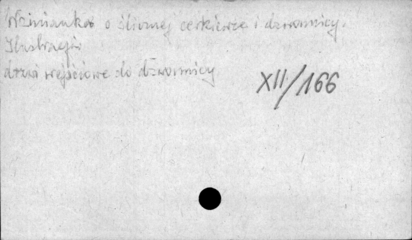 Wzmianka o ślicznej cerkiewce i dzwonnicy.
Ilustracja
drzwi wejściowe do dzwonnicy
XII/166